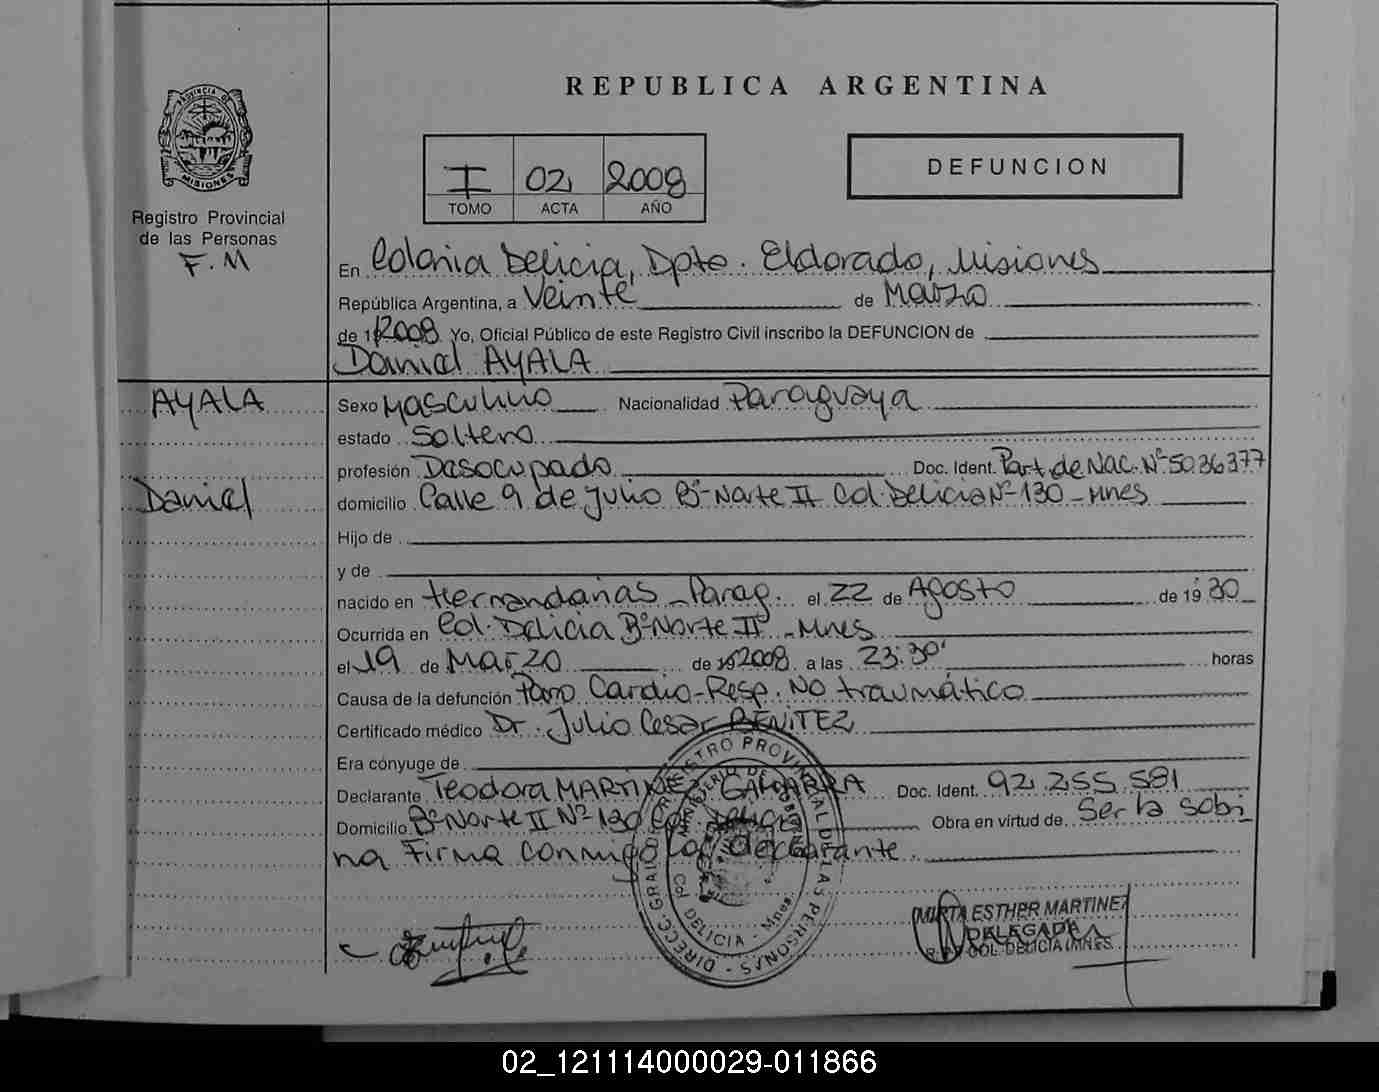 REPUBLICA ARGENTINA
PROVINCIA DE
MISIONES
Registro Provincial
de las Personas
F.M
I 02 2008
TOMO ACTA AÑO
DEFUNCION
En Colonia Delicia, Dpto. Eldorado, Misiones
República Argentina, a Veinte de Marzo
de 2008 Yo, Oficial Público de este Registro Civil inscribo la DEFUNCION de
Daniel AYALA
AYALA
Daniel
Sexo Masculino Nacionalidad Paraguaya
estado Soltero
profesión Dasocupado Doc. Ident. Part. de Nac. Nº 5036377
domicilio Calle 9 de Julio Bº Norte II Col. Delicia Nº 130 - Mnes
Hijo de
y de
nacido en Hernandarias - Parag. el 22 de Agosto de 19
Ocurrida en Col. Delicia Bº Norte II - Mnes
el 19 de Marzo de 2008 a las 23:30' horas
Causa de la defunción Paro Cardio-Resp. No traumático
Certificado médico Dr. Julio Cesar BENITEZ
Era cónyuge de
Declarante Teodora MARTINEZ GAMARRA Doc. Ident. 92.255.581
Domicilio Bº Norte II Nº 130 Col. Delicia Obra en virtud de Ser la sobi
na Firma conmigo La declarante
DIRECC. GRAL. DE REGISTRO PROVINCIAL DE LAS PERSONAS
MINISTERIO DE GOBIERNO
Col. DELICIA - Mnes.
MIRTA ESTHER MARTINEZ
DELEGADA
COL. DELICIA MNES.
02_121114000029-011866